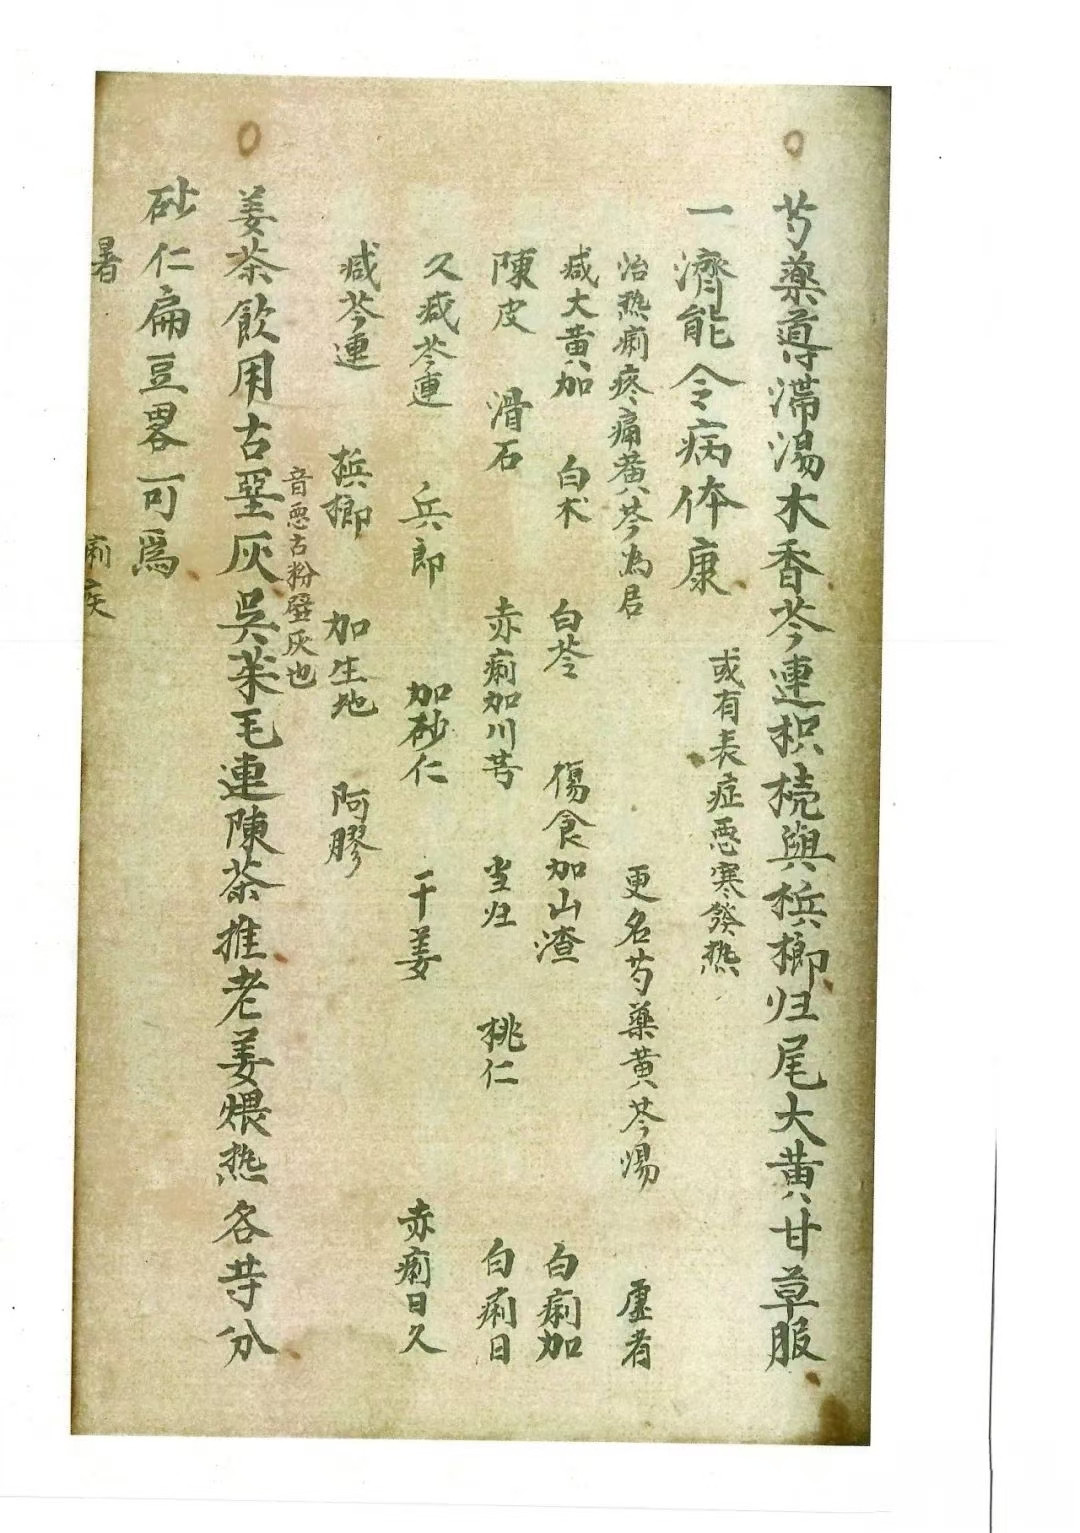 芍藥導滯湯木香芩連枳桡與梹榔归尾大黄甘草服
一濟能令病体康
或有表症恶寒發热
治热痢疼痛黄芩為君 更名芍藥黄芩湯 虚者
减大黄加 白术 白苓 傷食加山渣 白痢加
陳皮 滑石 赤痢加川芎 当归 桃仁 白痢日
久减芩連 兵郎 加砂仁 干姜 赤痢日久
减芩連 梹榔 加生地 阿膠
音恶古粉壁灰也
姜茶飲用古堊灰吳茱毛連陳茶推老姜煨热各等分
砂仁扁豆畧可爲
暑 痢疾